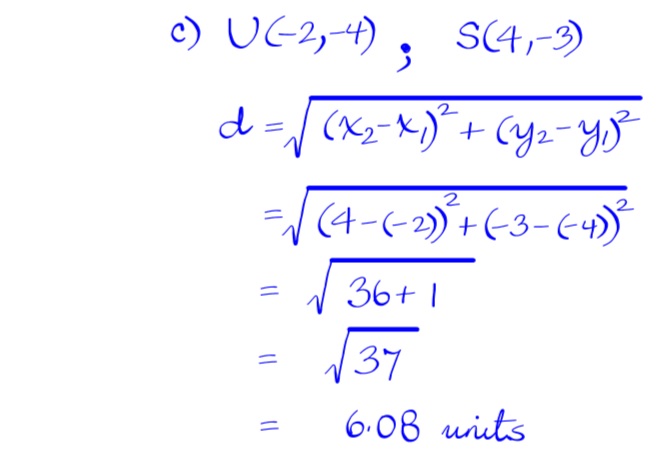 c) U(-2,-4) ; S(4,-3)
d = √(x₂-x₁)² + (y₂-y₁)²
= √(4-(-2))² + (-3-(-4))²
= √36+1
= √37
= 6.08 units